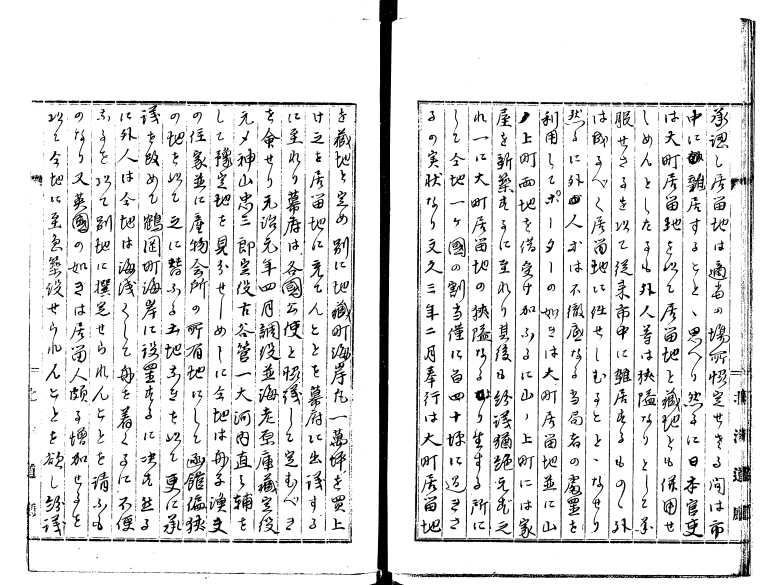 承認し居留地は適当の場所協定せざる間は市
中に雑居することゝ思へり然るに日本官吏
は大町居留地を以て居留地と蔵地とも併用せ
しめんとしたるも外人等は狭隘なりとして承
服せざるを以て従来市中に雑居するものゝ外
は成るべく居留地に住せしむことゝなせり
然るに外人求は不徹底なる当局者の處置を
利用してポーターの如きは大町居留地並に山
ノ上町西地を借受け加ふるに山ノ上町には家
屋を新築するに至れり其後も紛議猶絶えず之
れ一に大町居留地の狭隘なるより生する所に
して今地一ヶ國の割当僅に百四十坪に過ぎざ
るの実状なり文久三年二月奉行は大町居留地
を蔵地と定め別に地蔵町海岸九一萬坪を買上
け之を居留地に充てんことを幕府に出議する
に至れり幕府は各國公使と協議して定むべき
を命せり元治元年四月調役並海老原庫蔵定役
元〆神山忠三郎定役古谷管一大河内直る輔を
して豫定地を見分せしめしに今地は舟子漁夫
の住家並に産物会所の所有地にして函館偏狭
の地を以て之に替ふる土地なきを以て更に承
議を改めて鶴岡町海岸に設置するに決す然る
に外人は今地は海浅くして舟を着くるに不便
なるを以て別地に撰定せられんことを請ふも
のなり又英國の如きは居留人頗る増加せるを
以て今地に至急築設せられんことを欲し紛議